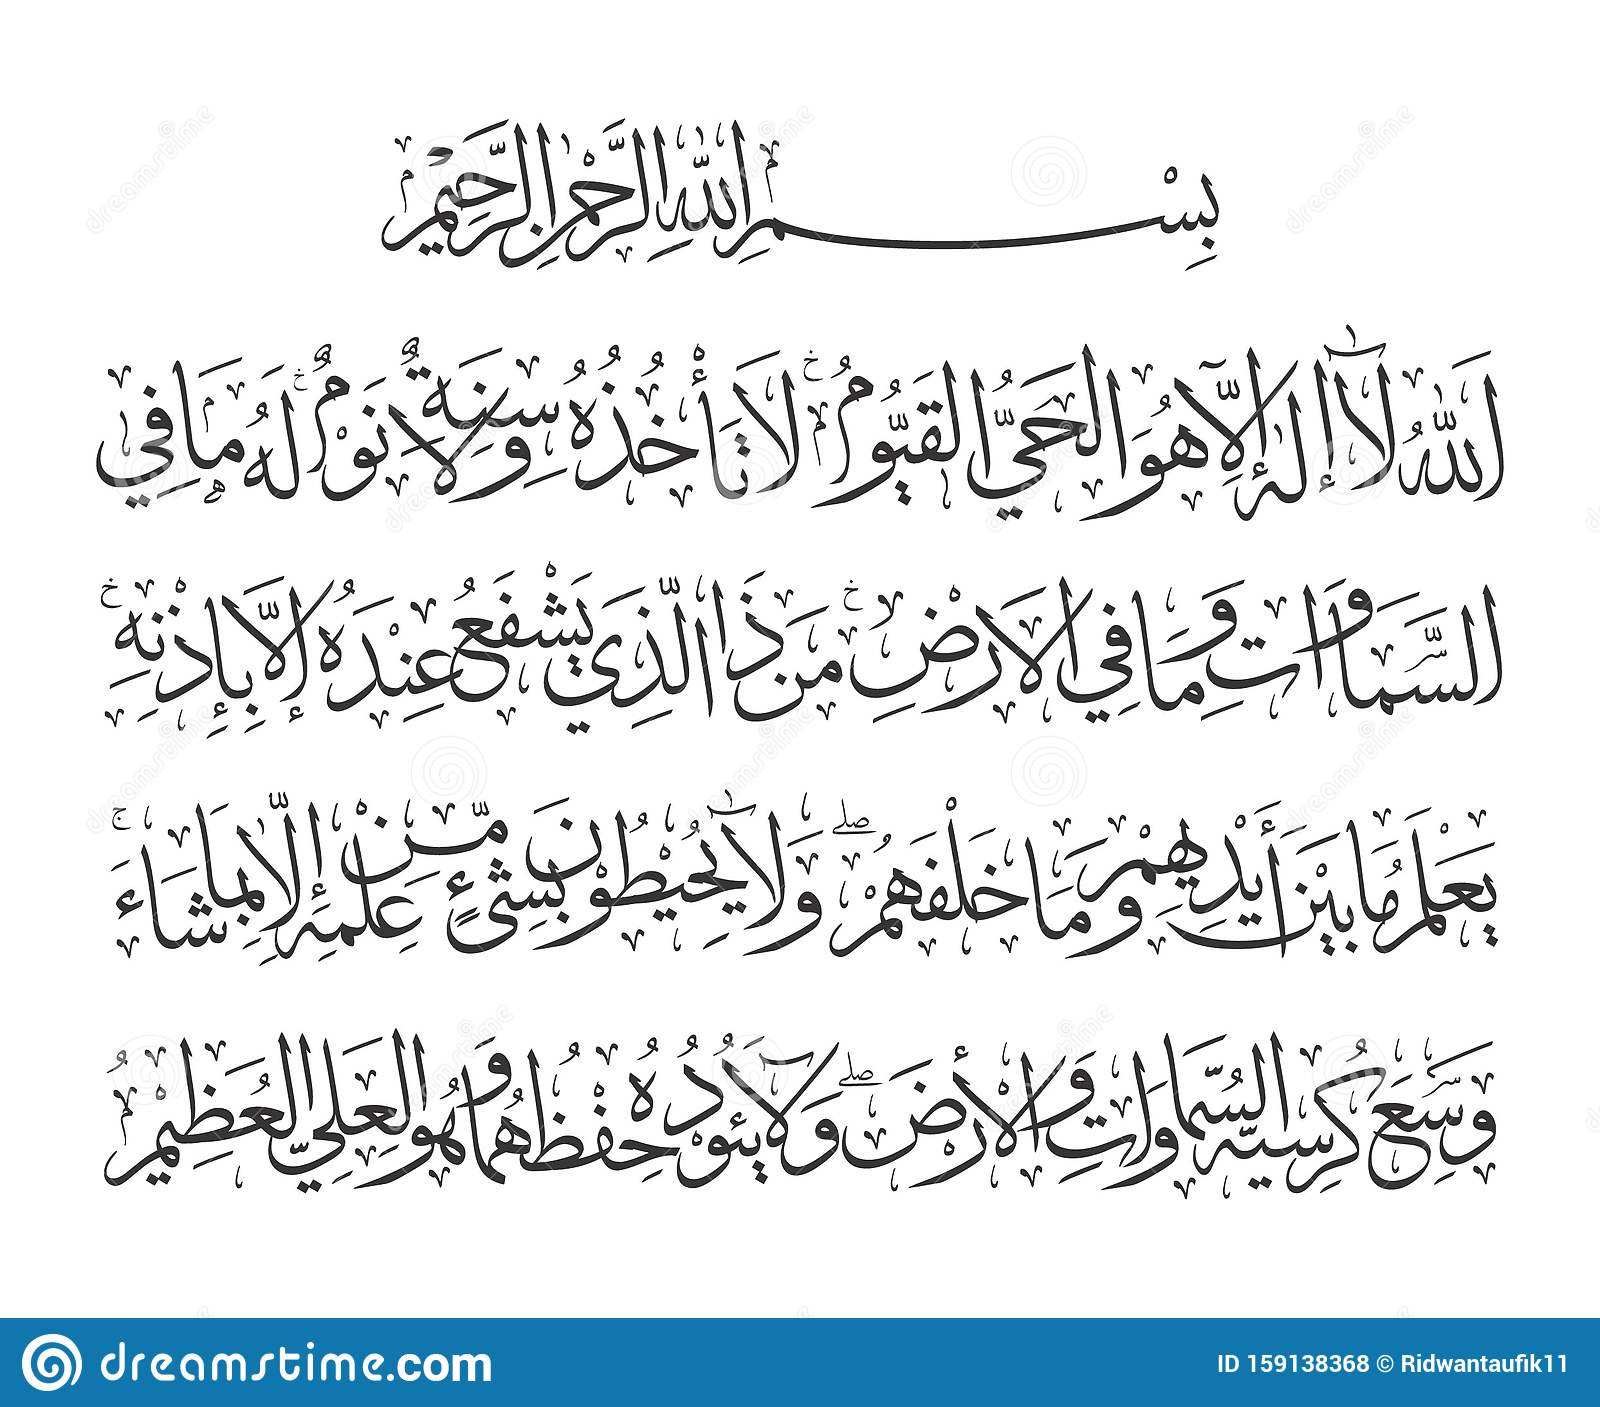 بِسْمِ اللّٰهِ الرَّحْمٰنِ الرَّحِيْمِ
اَللّٰهُ لَآ إِلٰهَ إِلَّا هُوَ الْحَيُّ الْقَيُّوْمُ لَا تَأْخُذُهُ سِنَةٌ وَلَا نَوْمٌ لَهُ مَا فِي
السَّمَاوَاتِ وَمَا فِي الْاَرْضِ مَنْ ذَا الَّذِي يَشْفَعُ عِنْدَهُ إِلَّا بِإِذْنِهِ
يَعْلَمُ مَا بَيْنَ أَيْدِيهِمْ وَمَا خَلْفَهُمْ وَلَا يُحِيْطُوْنَ بِشَيْءٍ مِّنْ عِلْمِهِ إِلَّا بِمَا شَاءَ
وَسِعَ كُرْسِيُّهُ السَّمَاوَاتِ وَالْأَرْضَ وَلَا يَئُوْدُهُ حِفْظُهُمَا وَهُوَ الْعَلِيُّ الْعَظِيْمُ
dreamstime.com
ID 159138368 © Ridwantaufik11